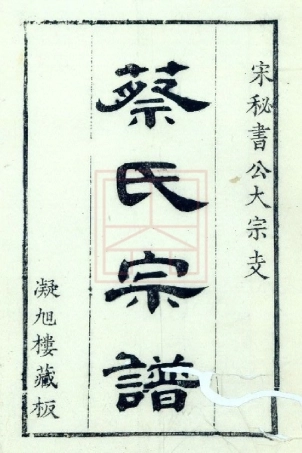 宋秘書公大宗支
蔡氏宗譜
凝旭樓藏板